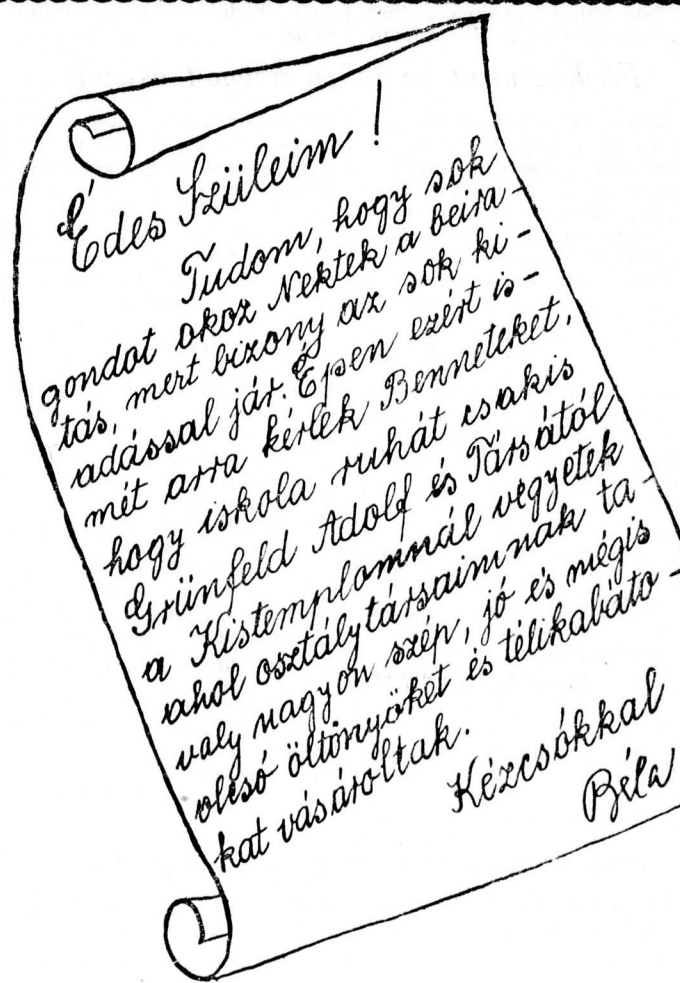 Édes Szüleim !
Tudom, hogy sok
gondot okoz Nektek a beira-
tás, mert bizony az sok ki-
adással jár. Épen ezért is-
mét arra kérlek Benneteket,
hogy iskola ruhát csakis
Grünfeld Adolf és Társától
a Kistemplomnál vegyetek
ahol osztálytársaimnak ta-
valy nagyon szép, jó és mégis
olcsó öltönyöket és télikabáto-
kat vásároltak.
Kézcsókkal
Béla